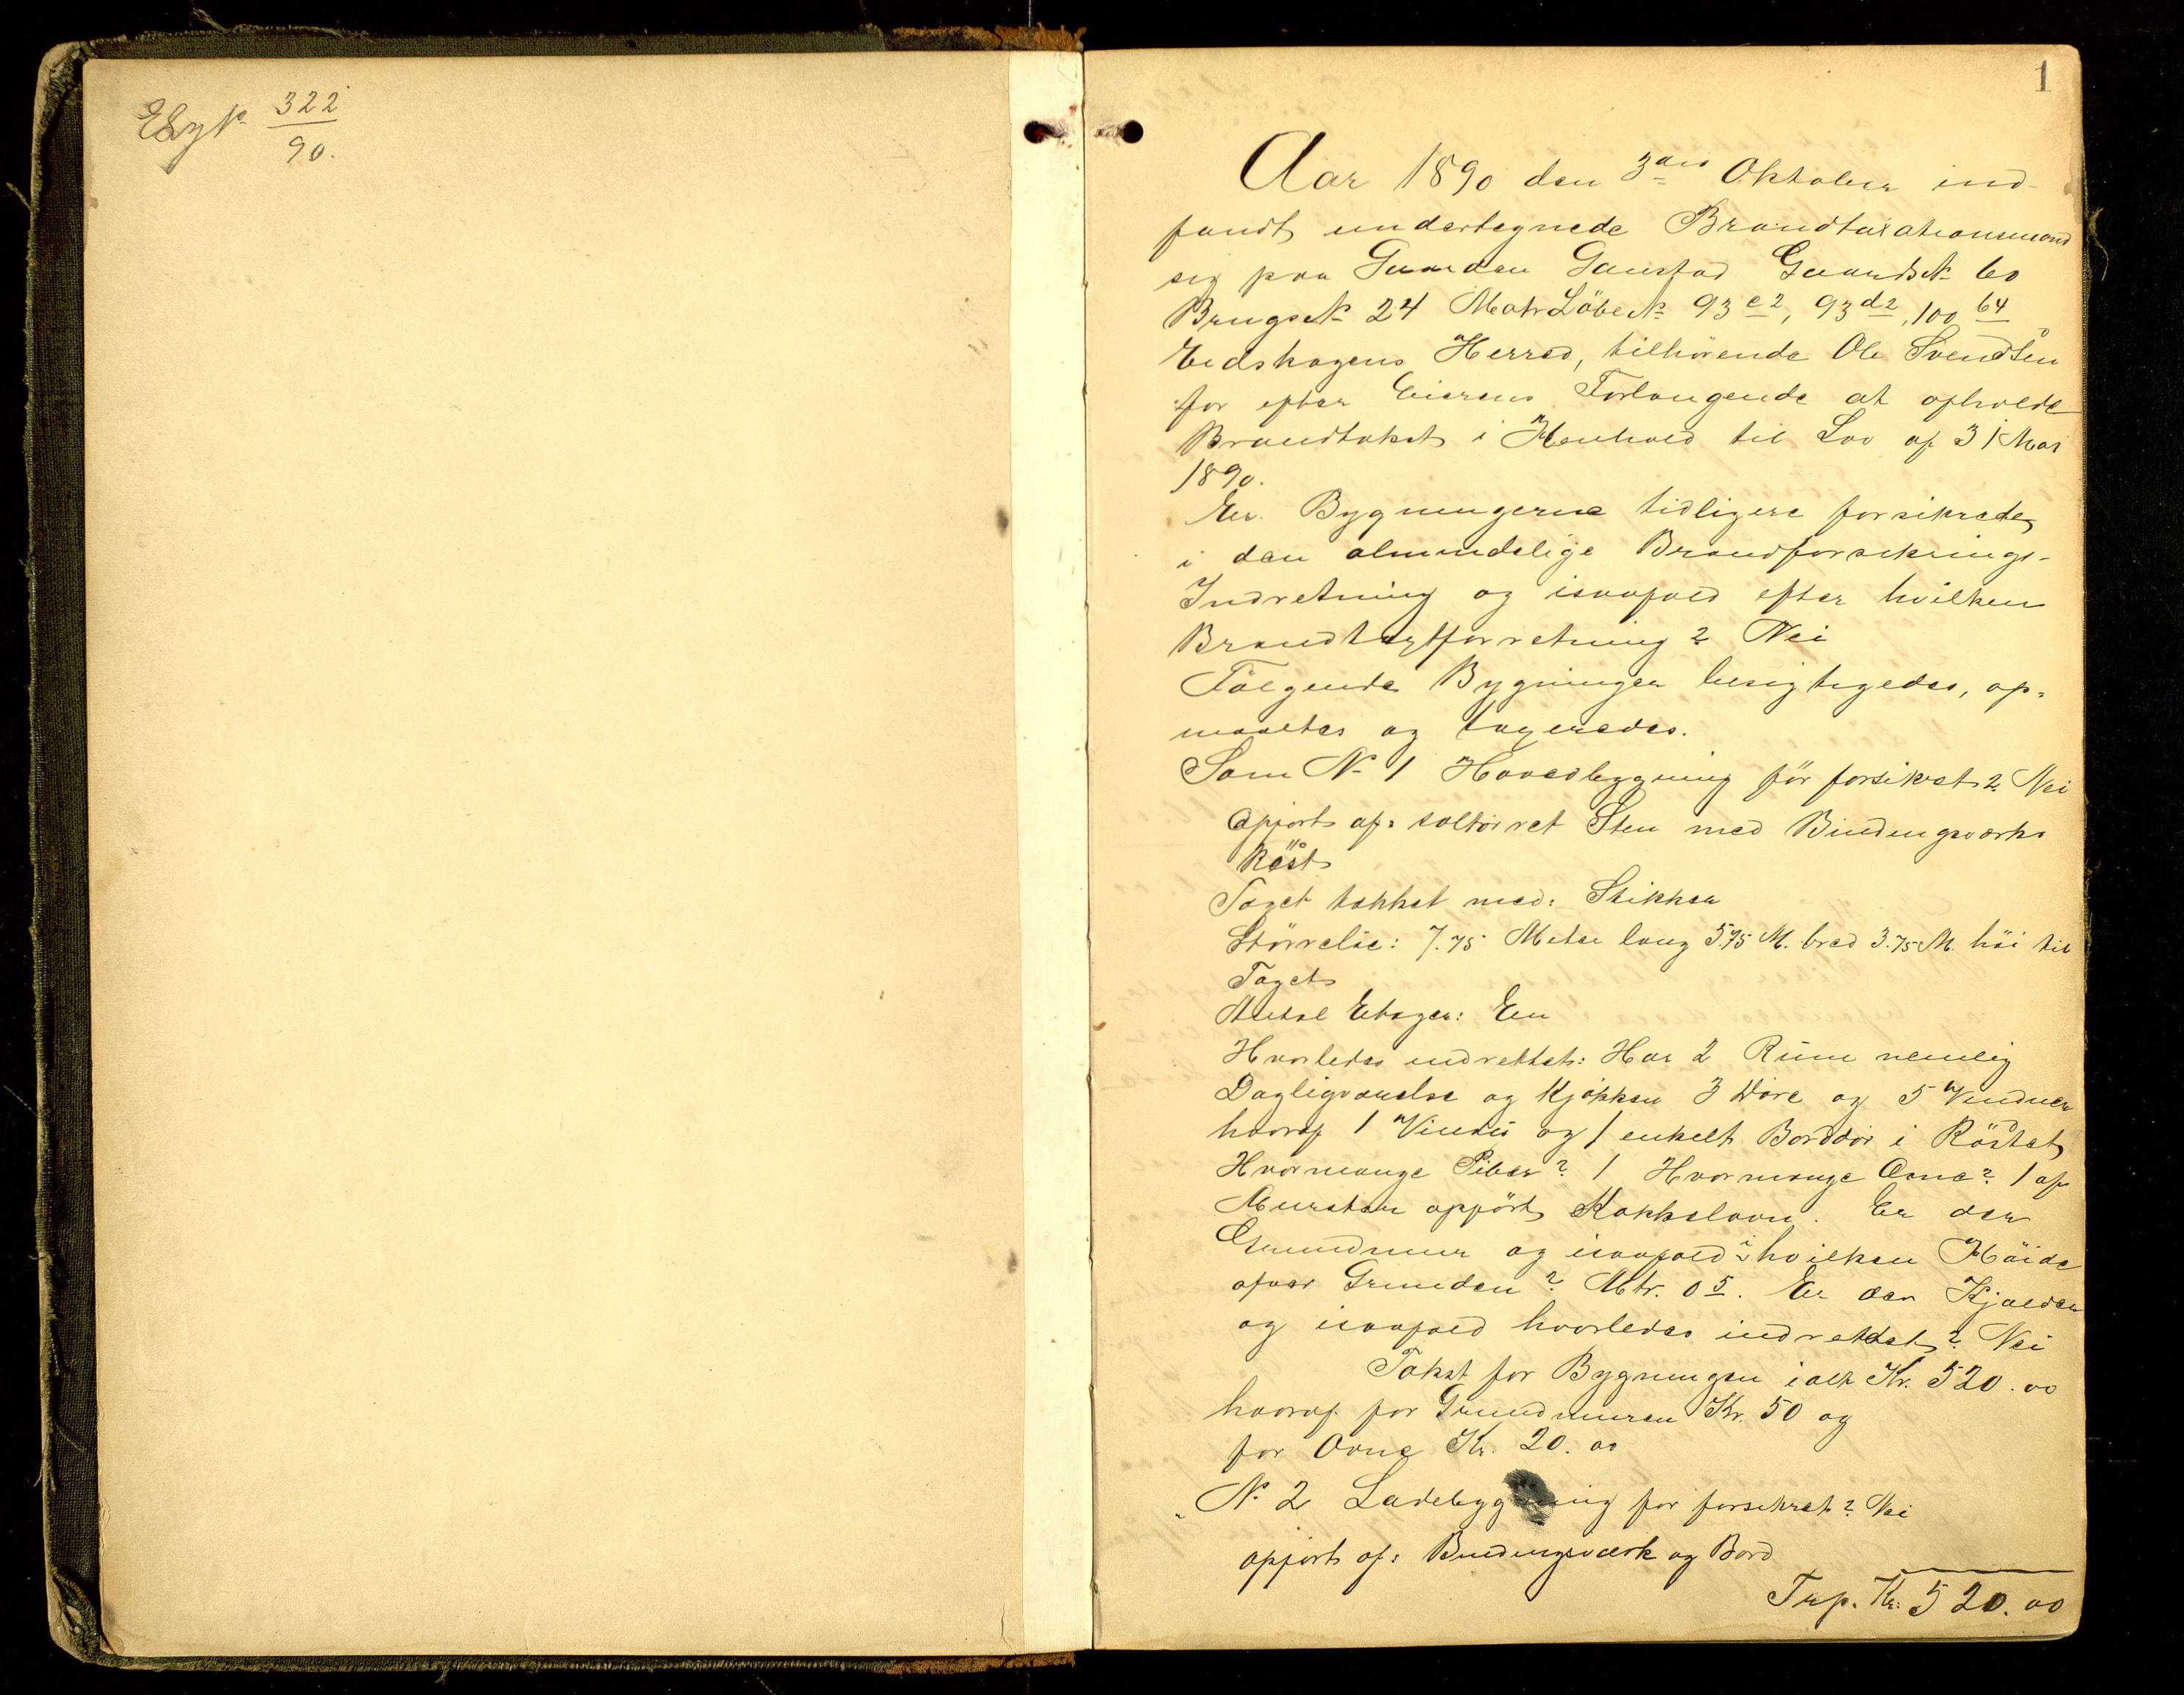 322
90.
1
Aar 1890 den 3die Oktober ind-
fandt undertegnede Brandtaxationsmænd
sig paa Gaarden Gaustad Gaards№ 60
Brugs№ 24 Matr Löbe№ 93 c2, 93 d2, 100 64
Eidskogens Herred, tilhörende Ole Svendsen
for efter Eierens Forlangende at afholde
Brandtakst i Henhold til Lov af 31 Mai
1890.
Er Bygningerne tidligere forsikrede
i den almindelige Brandforsikrings-
Indretning og isaafald efter hvilken
Brandtaxtforretning? Nei
Følgende Bygninger besigtigedes, op-
maaltes og taxeredes.
Som № 1 Hovedbygning för forsikret? Nei
Opført af: soltörret Sten med Bindingsværks
Röst
Taget tækket med: Stikker
Störrelse: 7.75 Meter lang 5.75 M. bred 3.75 M. höi til
Taget
Antal Etager: En
Hvorledes indrettet: Har 2 Rum nemlig
Dagligværelse og Kjøkken 3 Döre og 5 Vinduer
hvoraf 1 Vindu og 1 enkelt Borddör i Röstet
Hvormange Piber? 1 Hvormange Ovne? 1 af
Mursten opfört Kakkelovn. Er der
Grundmur og isaafald i hvilken Höide
over Grunden? Mtr. 0 5. Er der Kjælder
og isaafald hvorledes indrettet? Nei
Takst for Bygningen ialt Kr. 520.00
hvoraf for Grundmuren Kr. 50 og
for Ovne Kr. 20.00
" № 2 Ladebygning för forsikret? Nei
opført af: Bindingsværk og Bord
Trp. Kr. 520.00